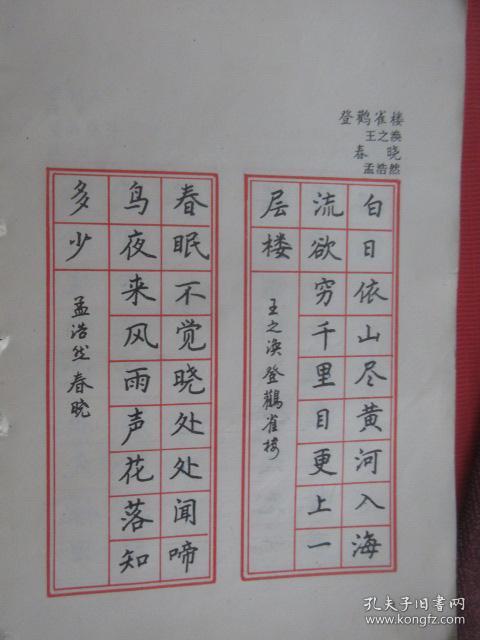 登鹳雀楼
王之涣
春晓
孟浩然
白日依山尽黄河入海
流欲穷千里目更上一
层楼
王之涣登鸛雀楼
春眠不觉晓处处闻啼
鸟夜来风雨声花落知
多少
孟浩然春晓
孔夫子旧书网
www.kongfz.com